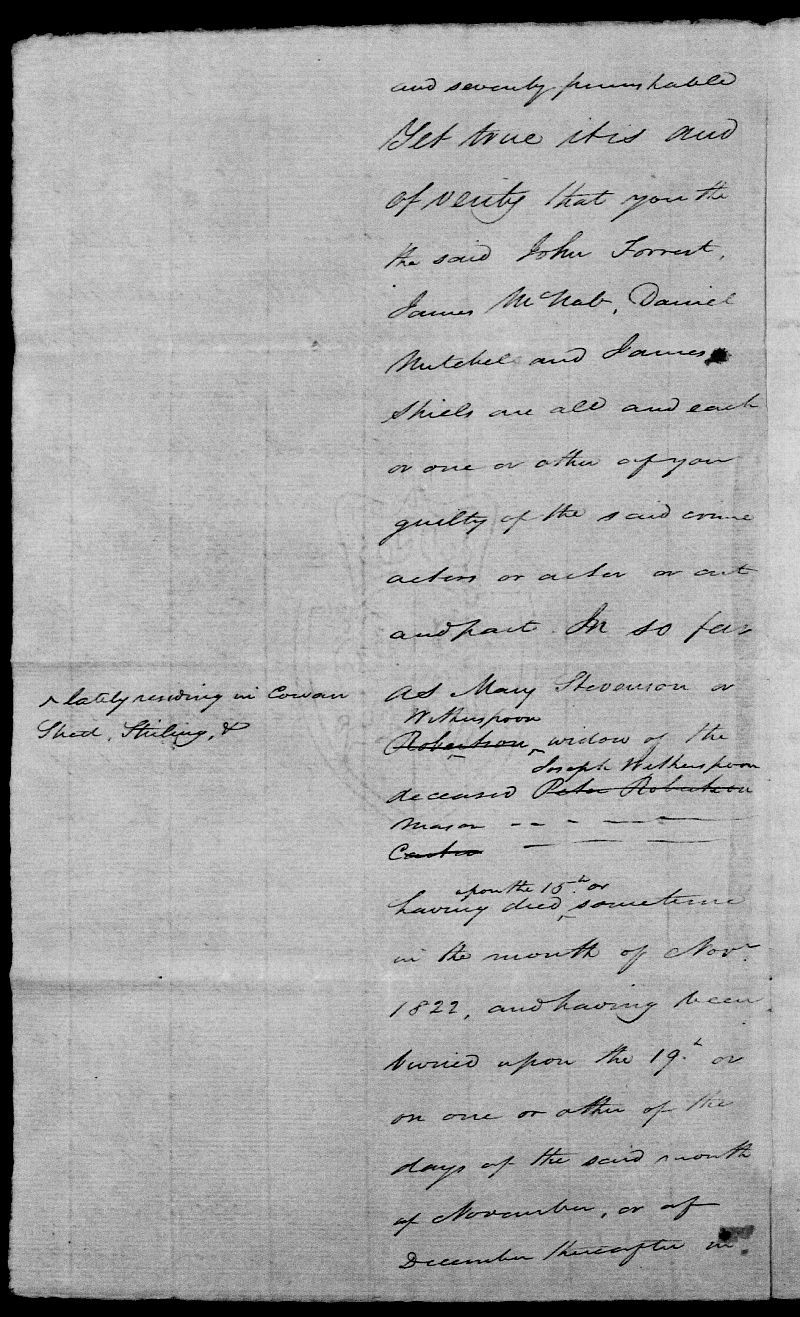 and severely punishable
Yet true it is and
of verity that you the
the said John Forrest,
James McNab, Daniel
Mitchel and James
Shiels are all and each
or one or other of you
guilty of the said crime
actors or actor or art
and part. In so far
as Mary Stevenson or
Witherspoon
Robertson, widow of the
^ lately residing in Cowan
Street, Stirling, &
Joseph Witherspoon
deceased Peter Robertson
Mason
having died sometime
upon the 15th. or
in the month of Novr.
1822, and having been
buried upon the 19th. or
on one or other of the
days of the said month
of November, or of
December thereafter in